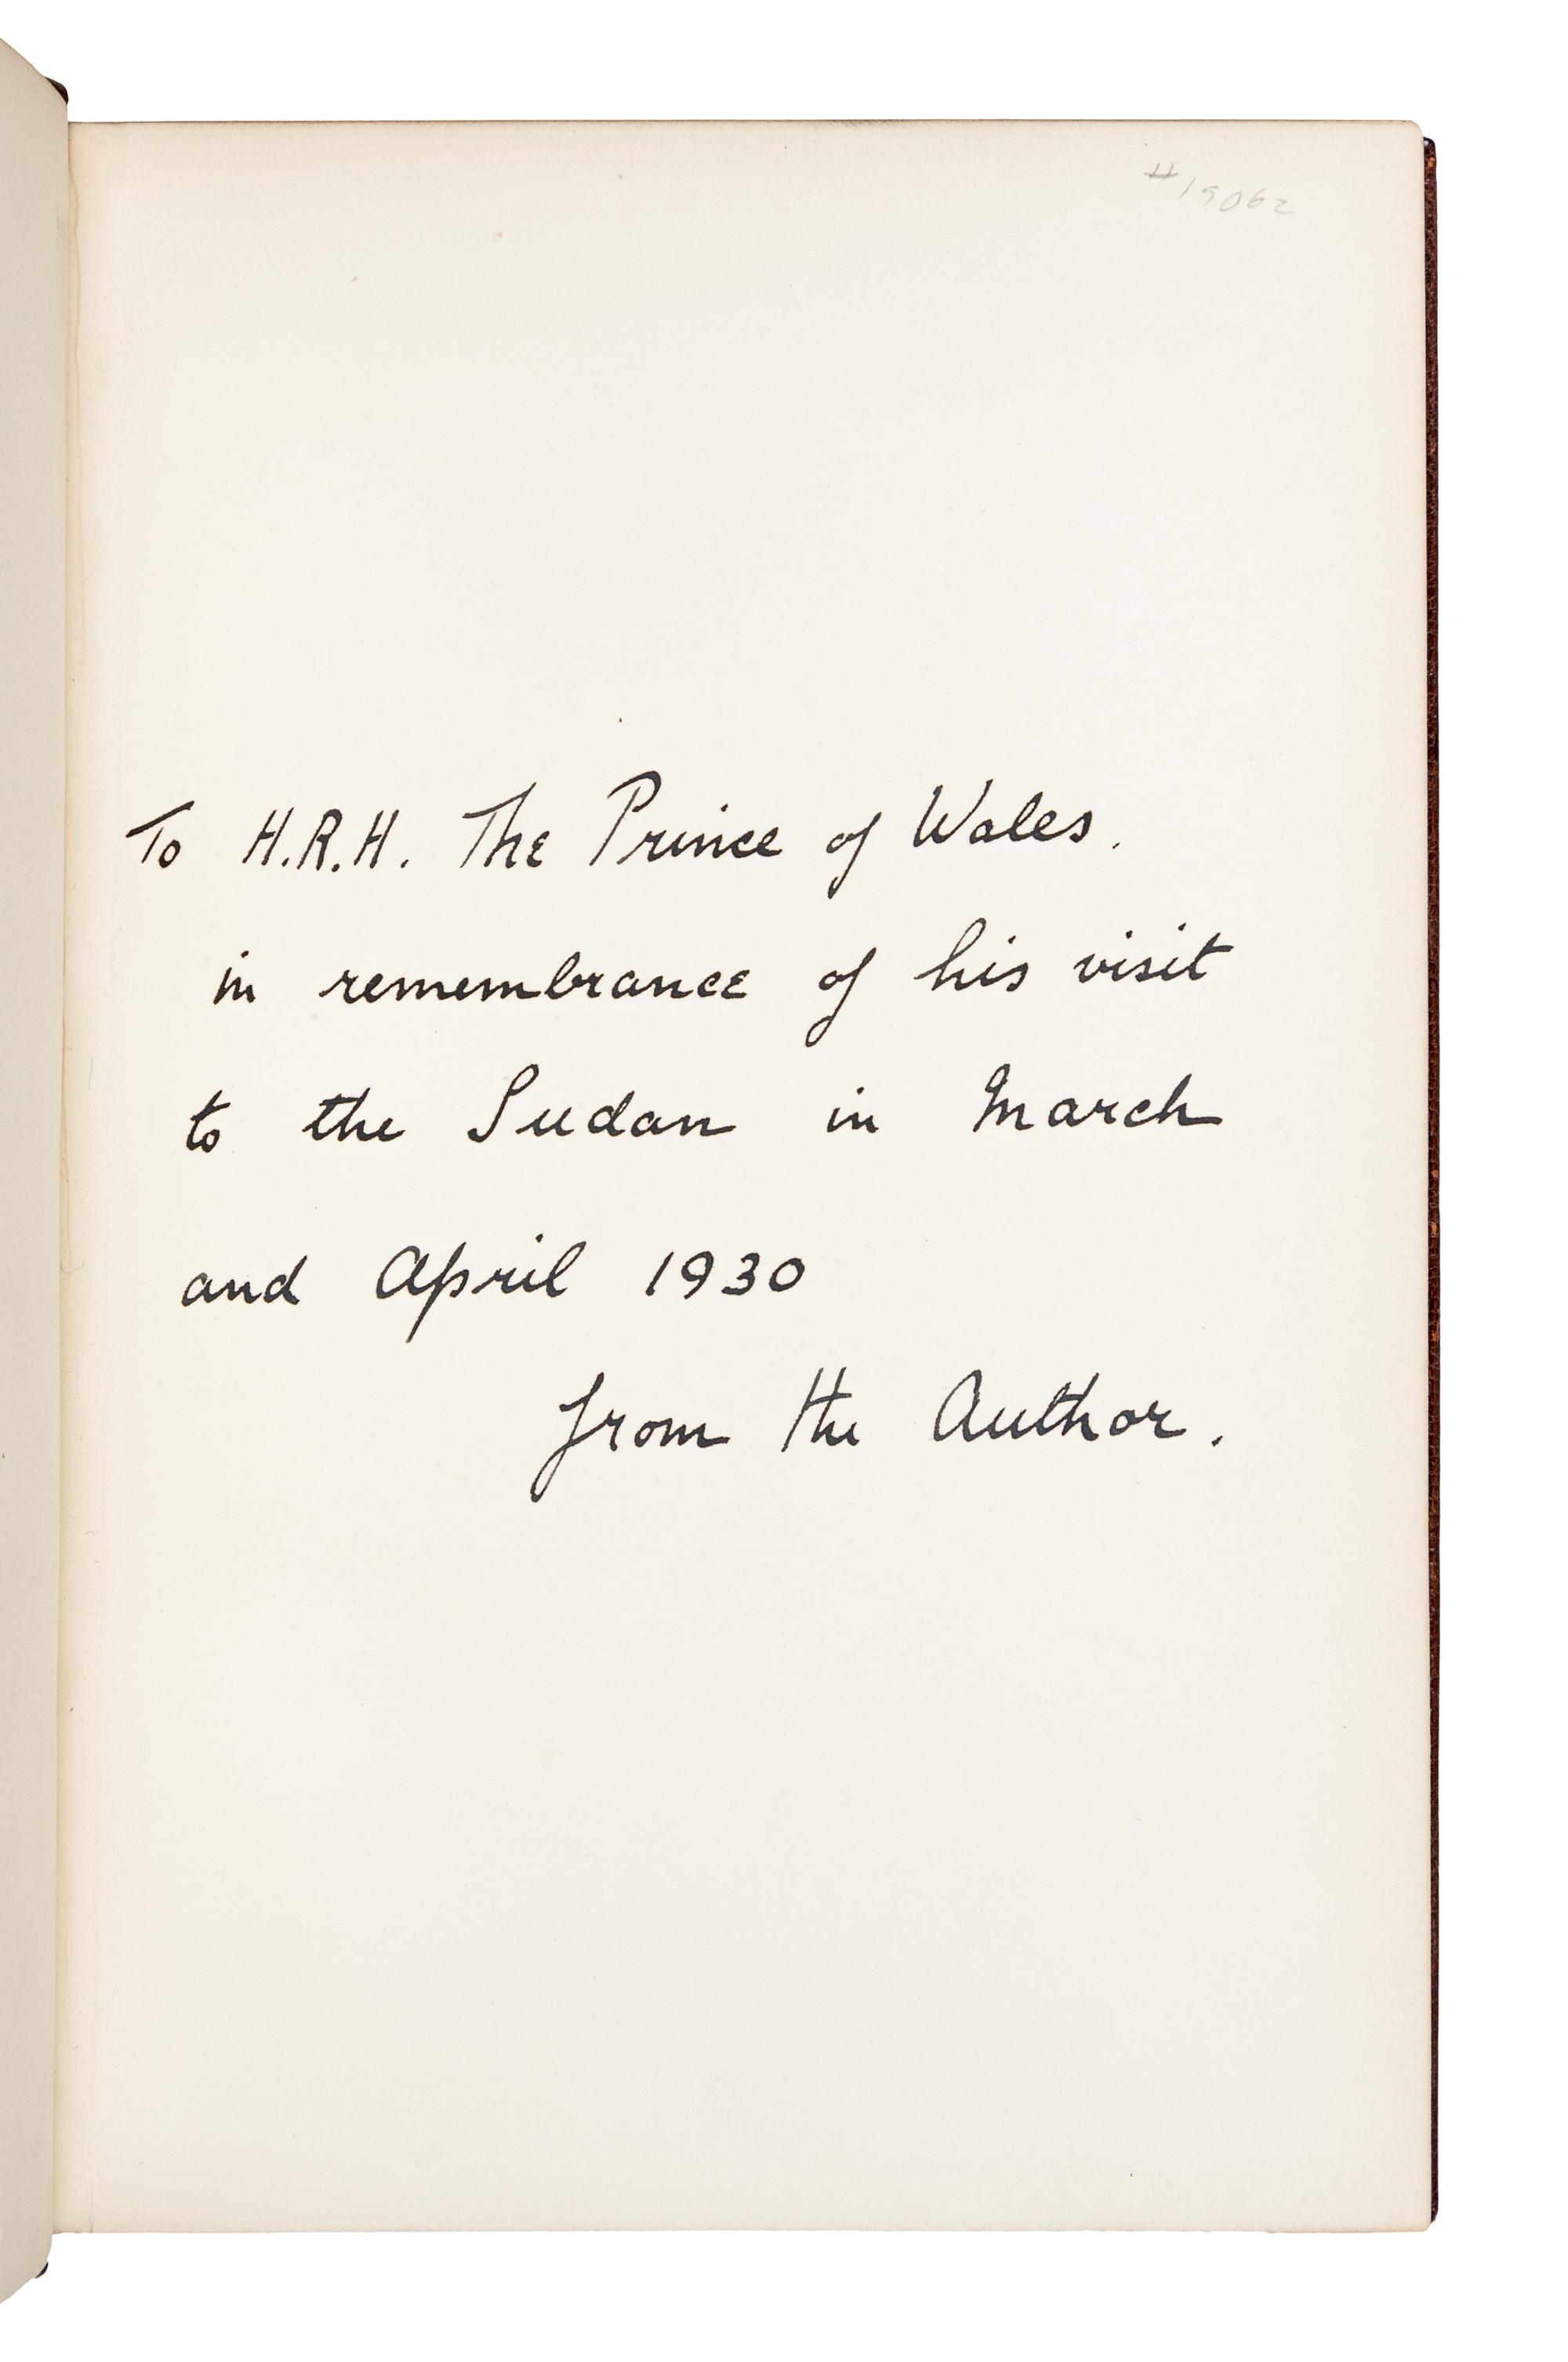 #19062
To H.R.H. The Prince of Wales.
in remembrance of his visit
to the Sudan in March
and April 1930
from the Author.